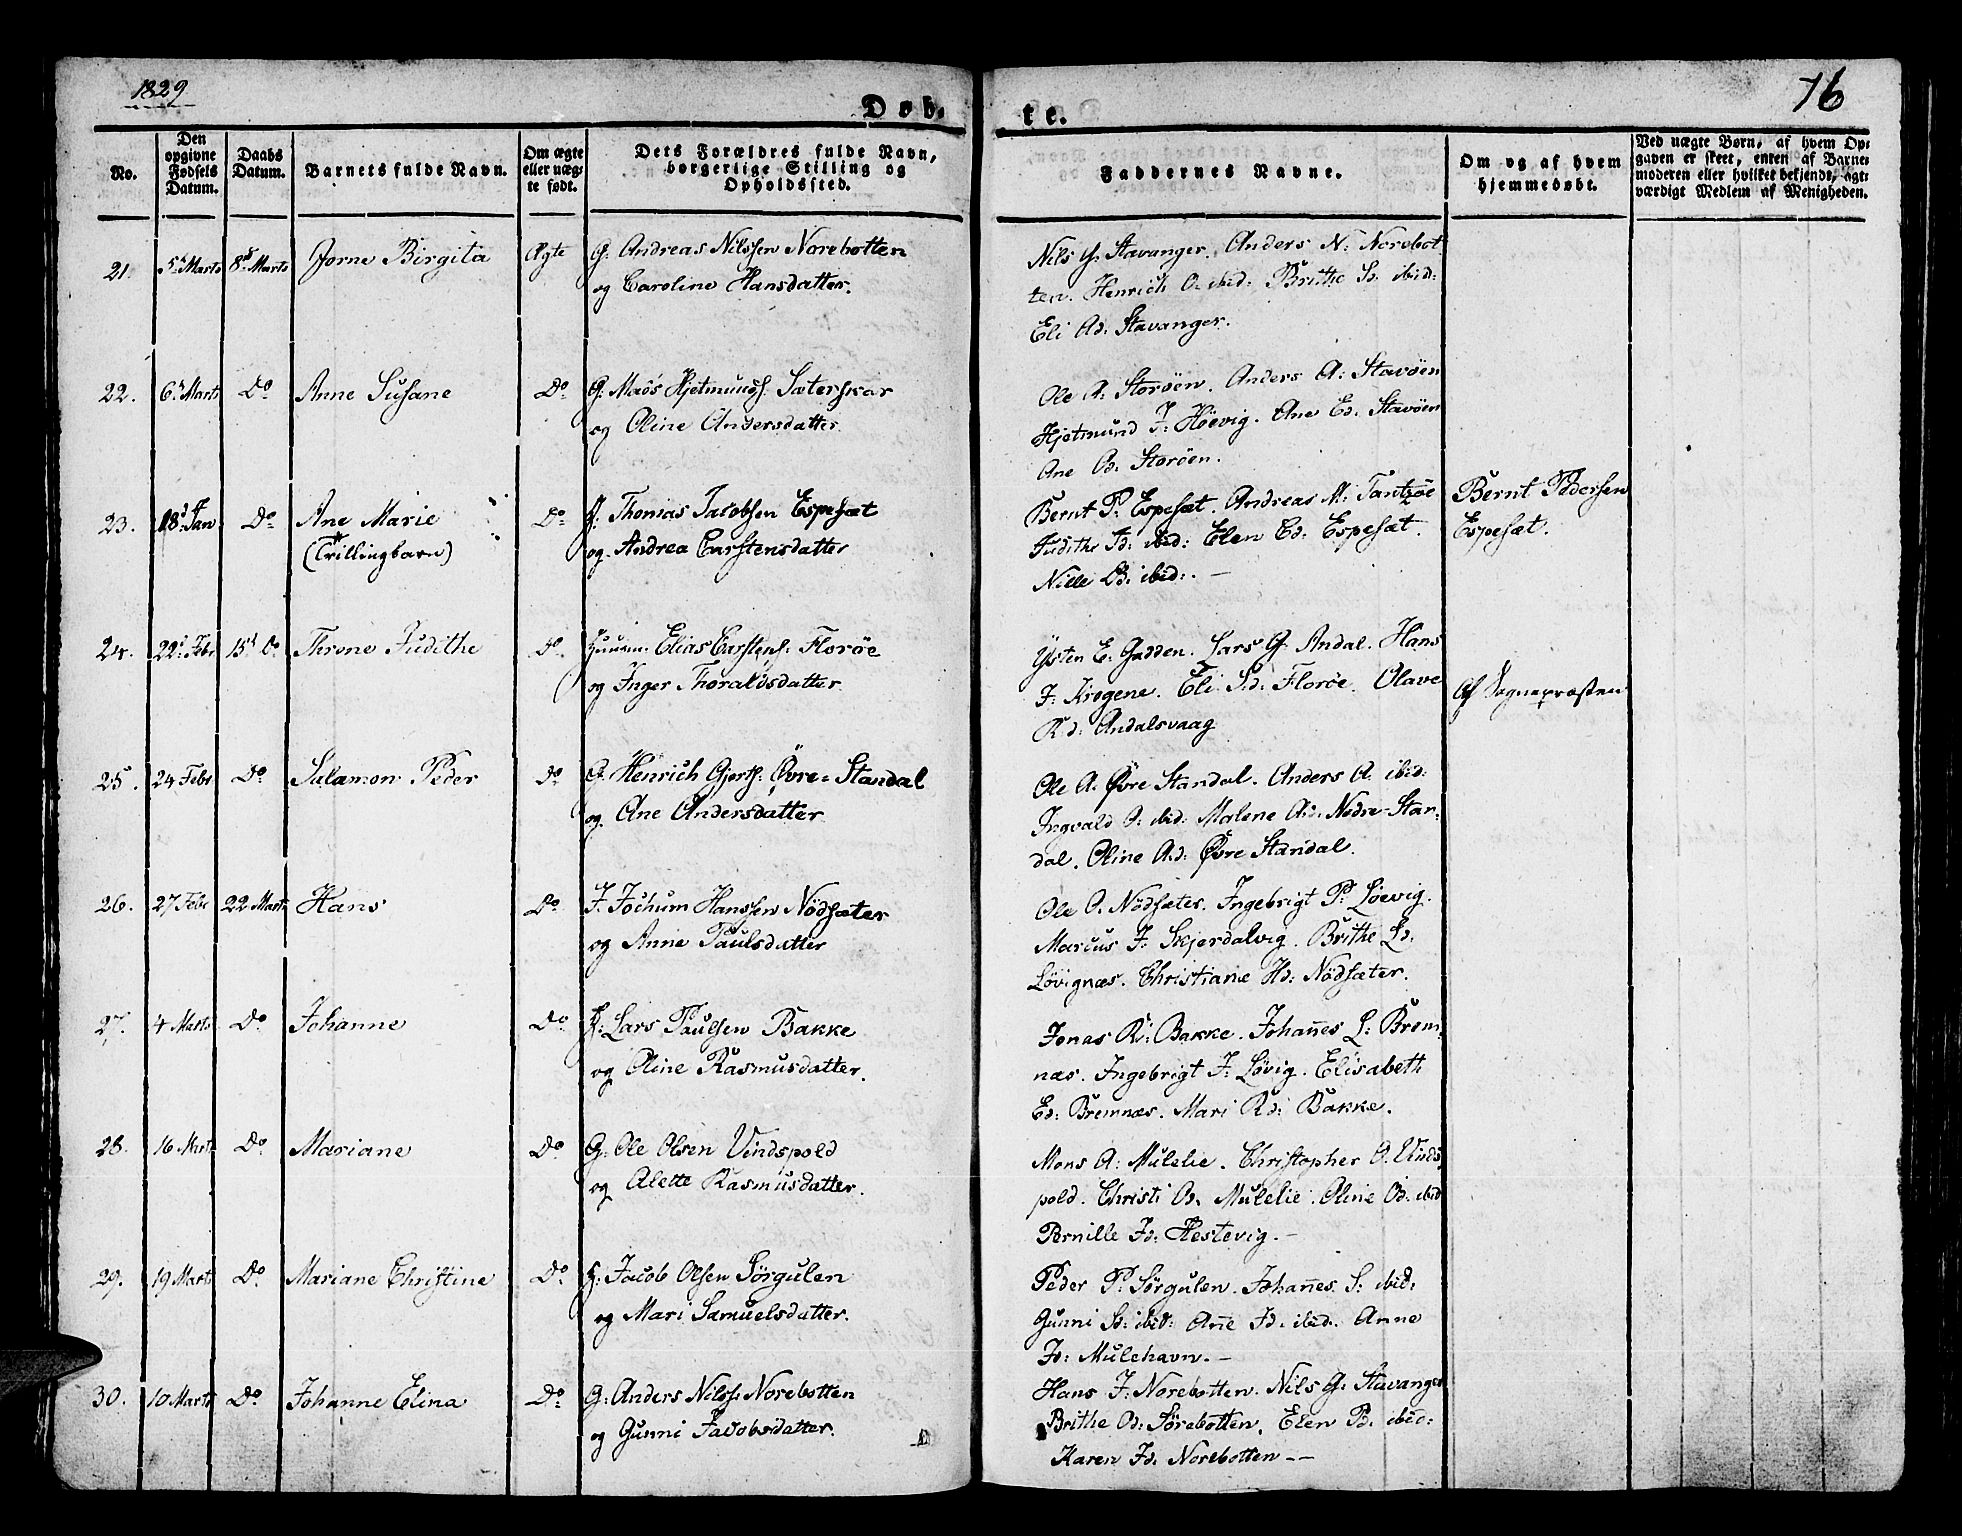 1829
76
Døb. te.
No.
Den opgivne Fødsels Datum.
Daabs Datum.
Barnets fulde Navn.
Om ægte eller uægte født.
Dets Forældres fulde Navn, borgerlige Stilling og Opholdssted.
Faddernes Navne.
Om og af hvem hjemmedøbt.
Ved uægte Børn, af hvem Opgaven er skeet, enten af Barnemoderen eller hvilket bekjendt, agtværdigt Medlem af Menigheden.
21. 5 Marts 8 Marts Jorne Birgita Ægte G: Andreas Nilssen Norebotten
og Caroline Hansdatter.
Nils G: Stavanger. Anders N: Norebot
ten. Henrich O. ibid: Brithe D. ibid:
Eli Ad: Stavanger.
22. 6 Marts Do Anne Susane Do G: Mads Hjetmunds: Sæterskar
og Oline Andersdatter
Ole A: Storöen. Anders A: Stavöen
Hjetmund J: Höevig. Ane Ed. Stavöen
Ane Od: Storöen.
23. 18 Jan Do Ane Marie Do Thomas Jacobsen Espesæt
(Trillingbarn)
og Andrea Carstensdatter
Bernt P: Espesæt. Andreas M: Tantzöe
Judithe Td: ibid: Elen Ed. Espesæt.
Nille Ld. ibid:. —
Bernt Pedersen
Espesæt.
24. 22 Febr 15 Do Throne Judithe Do Huusm: Elias Carstens: Floröe
og Inger Thoraldsdatter
Ysten E. Gadden. Lars G. Andal. Hans
J. Krogene. Eli Sd. Floröe. Olave
Rd: Andalsvaag
Af Sognepræsten
25. 24 Febr Do Salamon Peder Do G: Henrich Gjerts: Övre-Standal
og Ane Andersdatter
Ole A: Övre Standal. Anders A: ibid:
Ingvald O. ibid: Malene Ad. Nedre Stan-
dal. Oline Ad: Övre Standal.
26. 27 Febr 22 Marts Hans Do J. Jochum Hanssen Nödsæter
og Anne Paulsdatter
Ole O. Nödsæter. Ingebrigt P: Löevig.
Marcus J: Skjerdalvig. Brithe Ld:
Lövignæs. Christiane Hd: Nödsæter.
27. 4 Marts Do Johanne Do Lars Paulsen Bakke
og Oline Rasmusdatter.
Jonas R: Bakke. Johannes L: Brem-
næs. Ingebrigt J: Lövig. Elisabeth
Ed: Bremnæs. Mari Rd: Bakke.
28. 16 Marts Do Mariane Do G: Ole Olsen Vindspold
og Alette Rasmusdatter.
Mons A: Mulelie. Christopher O. Vinds
pold. Christi Od. Mulelie. Oline Od. ibid
Pernille Jd: Hestevig. —
29. 19 Marts Do Mariane Christine Do Jacob Olsen Sörgulen
og Mari Samuelsdatter.
Peder P: Sörgulen. Johannes. S: ibid:
Gunni Sd: ibid: Ane Jd. ibid. Anne
Jd: Mulehavn. —
30. 10 Marts Do Johanne Elina Do G: Anders Nilss: Norebotten
og Gunni Jacobsdatter.
Hans J: Norebotten. Nils G: Stavanger
Brithe Od: Sörebotten. Elen Pd. ibid:
Karen Jd. Norebotten ——